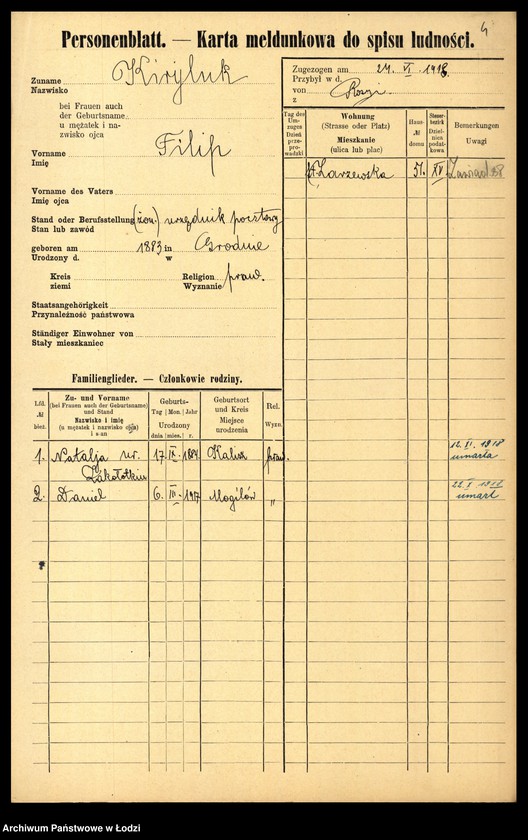 4
Personenblatt. — Karta meldunkowa do spisu ludności.
Zuname Kiryluk
Nazwisko
bei Frauen auch
der Geburtsname
u mężatek i na-
zwisko ojca
Vorname Filip
Imię
Vorname des Vaters
Imię ojca
Stand oder Berufsstellung (żon.) urzędnik pocztowy
Stan lub zawód
geboren am 1883 in Grodnie
Urodzony d. w
Kreis Religion praw.
ziemi Wyznanie
Staatsangehörigkeit
Przynależność państwowa
Ständiger Einwohner von
Stały mieszkaniec
Zugezogen am 24. VI. 1918.
Przybył w d.
von Rosji
z
Tag des Um-zuges Dzień prze-prowadzki
Wohnung
(Strasse oder Platz)
Mieszkanie
(ulica lub plac)
Haus-
№
domu
Steuer-
bezirk
Dziel-
nica
podat-
kowa
Bemerkungen
Uwagi
Zarzewska 51. XV
Familienglieder. — Członkowie rodziny.
Lfd.
№
bież.
Zu- und Vorname
(bei Frauen auch der Geburtsname)
und Stand
Nazwisko i imię
(u mężatek i nazwisko ojca)
i stan
Geburts-
Tag Mon. Jahr
Urodzony
dnia mies. r.
Geburtsort
und Kreis
Miejsce
urodzenia
Rel.
Wyzn.
1. Natalja ur. 17. IX. 1884 Kalisz praw. 12. VI. 1918
umarła
2. Daniel 6. III. 1917 Mogilów „
umarł
Archiwum Państwowe w Łodzi